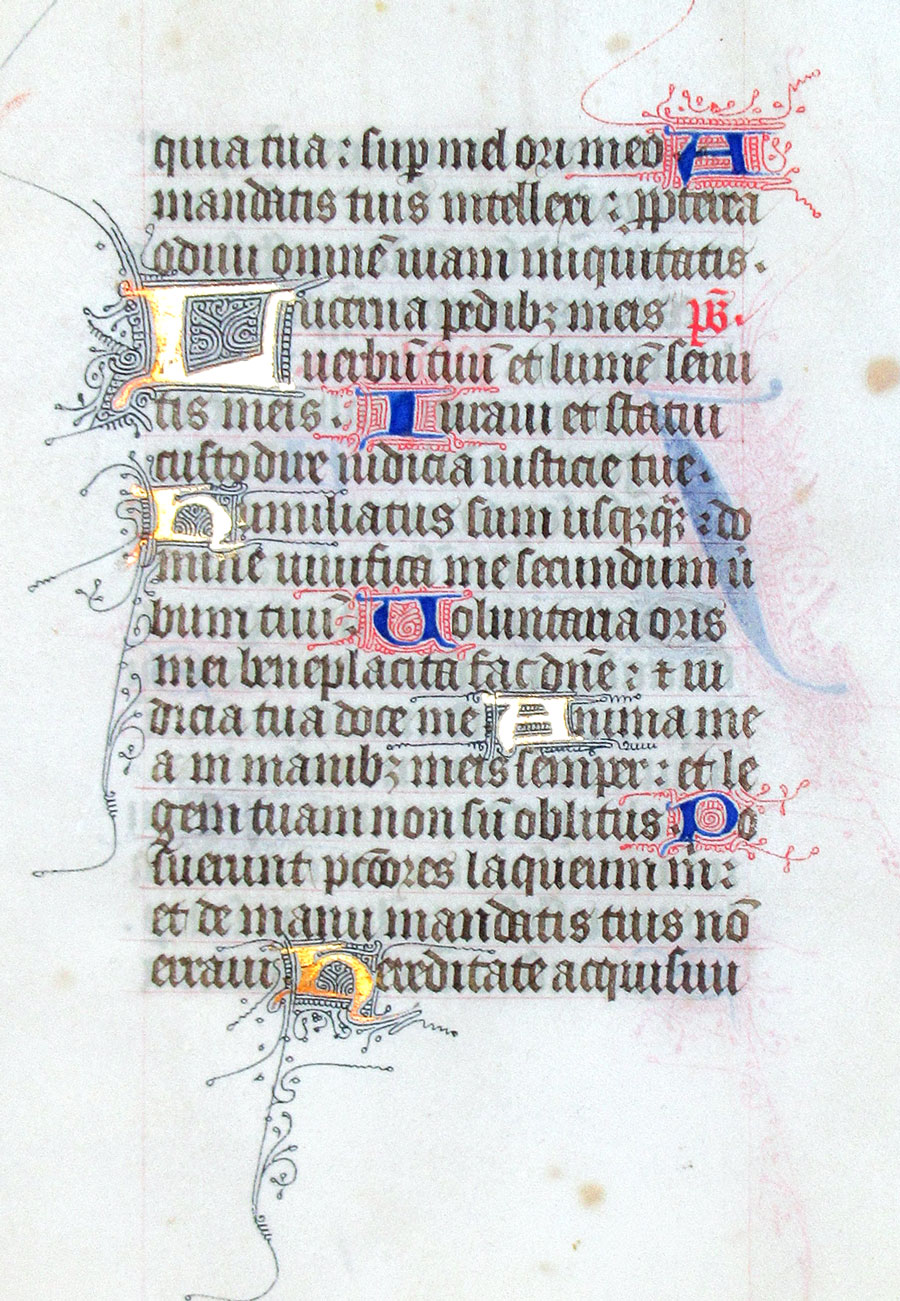 quia tua : sup̱ mel ori meo A
mandatis tuis intellexi : ꝓpterea
odiui omnē uiam iniquitatis .
Lucerna pedibꝫ meis ps̄.
uerbū tuū et lumē semi
tis meis : Iuraui et statui
custodire iudicia iusticie tue .
humiliatus sum usqꝫq̄ꝫ : do
mine uiuifica me secundum ū
bum tuū : Uoluntaria oris
mei beneplacita fac dn̄e : ⁊ iu
dicia tua doce me Anima me
a in manibꝫ meis semper : et le
gem tuam non sū oblitus Po
suerunt pc̄cores laqueum m̄ :
et de manu mandatis tuis nō
erraui Hereditate acquisiui